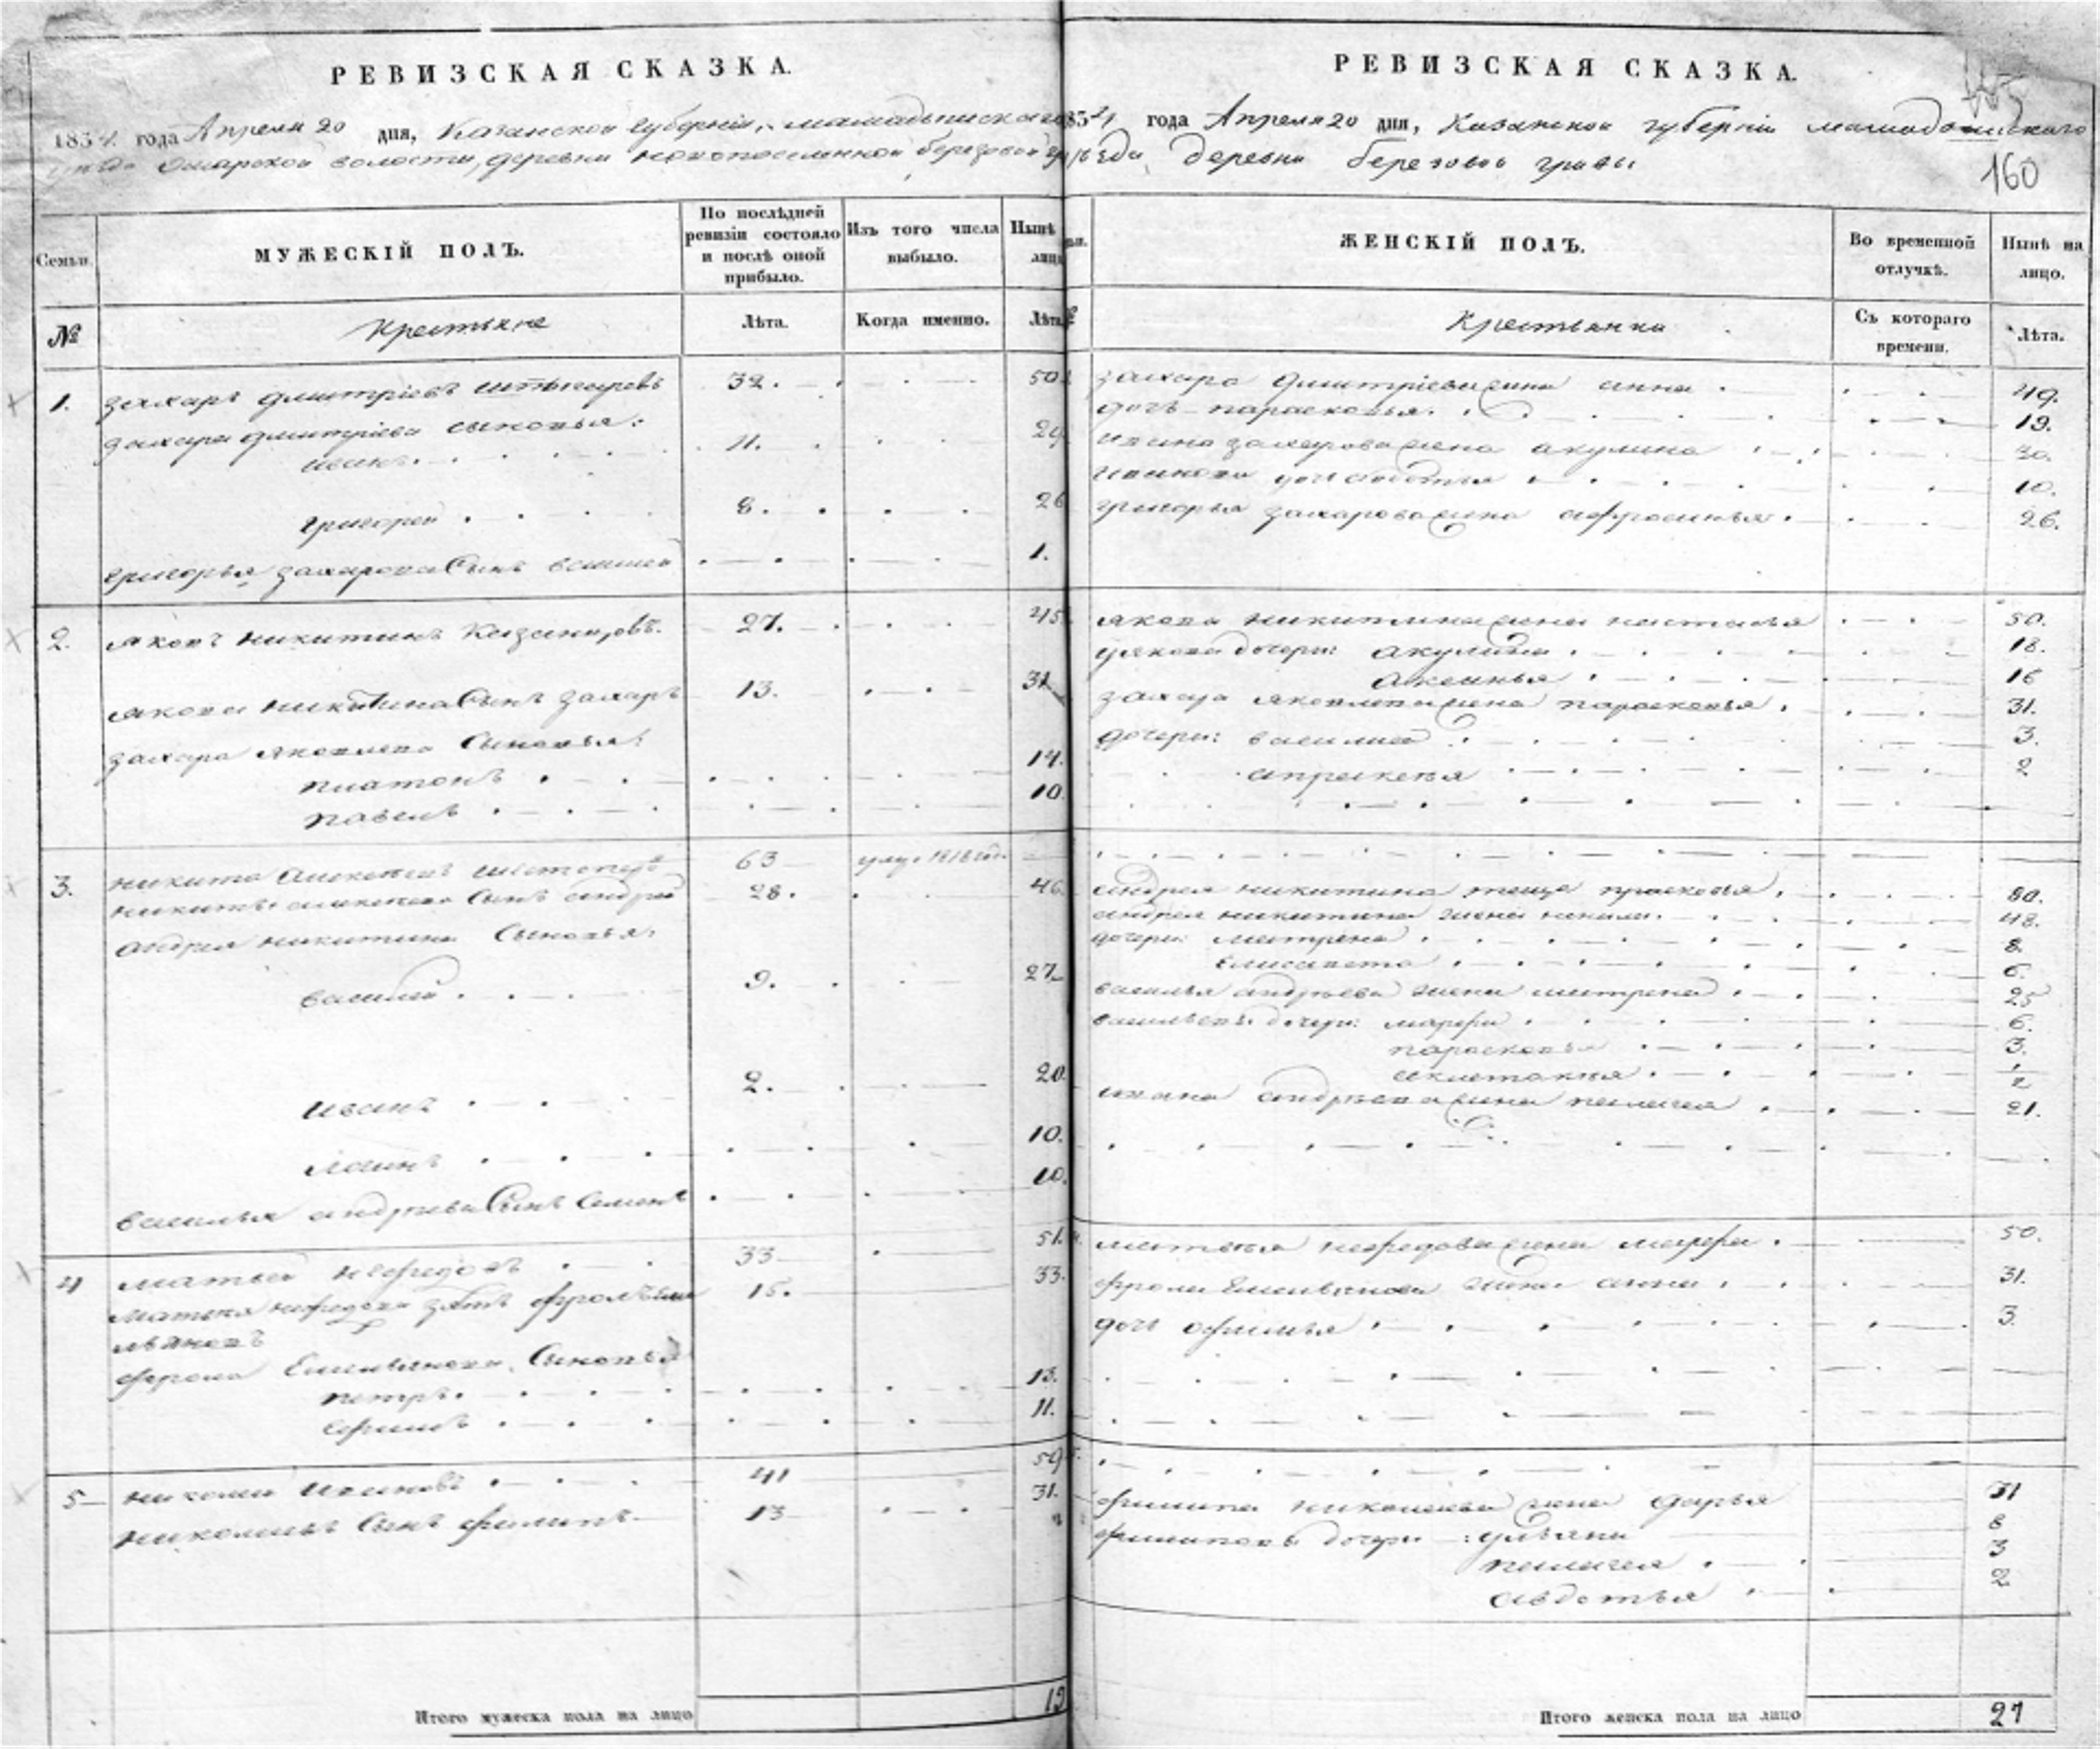 РЕВИЗСКАЯ СКАЗКА.
1834 года Апреля 20 дня, Казанской губернии, мамадышскаго
уезда Омарской волости, деревни новопоселенной березовой
Семьи.
МУЖЕСКІЙ ПОЛЪ.
По послѣдней ревизіи состояло и послѣ оной прибыло.
Изъ того числа выбыло.
Нынѣ лицо
№
Крестьяне
Лѣта.
Когда именно.
Лѣта
1. захаръ дмитріевъ 32. 50
захара дмитріева сыновья:
иванъ 11. 29
григорей 8. 26
григорья захарова Сынъ 1.
2. яковъ никитинъ 27. 45
якова никитина Сынъ захаръ 13. 31
захара яковлева Сыновья:
платонъ 14.
павелъ 10
3. никита 63 1818 год
никиты Сынъ андрей 28. 46
андрея никитина Сыновья:
василей 9. 27
иванъ 2. 20
10.
василья андреева Сынъ Семенъ 10.
4 матвей нефедовъ 33 51.
матвея нефедова зять фролъ Емельяновъ 15. 33.
фрола Емельянова Сыновья
петръ 13.
ефимъ 11.
5 николай ивановъ 41 59
николаевъ Сынъ филипъ 13 31.
Итого мужеска пола на лицо
РЕВИЗСКАЯ СКАЗКА.
1834 года Апреля 20 дня, Казанской губерніи мамадышскаго
уезда деревни березовой гривы
160
ЖЕНСКІЙ ПОЛЪ.
Во временной отлучкѣ.
Нынѣ на лицо.
Крестьянки
Съ котораго времени.
Лѣта.
захара дмитріева жена анна 49.
дочь парасковья. 19.
ивана захарова жена акулина 30.
иванова дочь авдотья 10.
григорья захарова жена афросинья 26.
якова никитина жена настасья 50.
якова дочери: акулина 18.
аксинья 16
захара яковлева жена парасковья 31.
дочери: василиса 3.
2
андрея никитина теща прасковья 80.
андрея никитина жена 48.
дочери: матрена 8.
Елисавета 6.
василья андреева жена матрена 25
васильевы дочери: марфа 6.
парасковья 3.
1/2
ивана андреева жена пелагея 21.
матвея нефедова жена марфа 50.
фрола Емельянова жена анна 31.
дочь афимья 3.
филипа николаева жена дарья 31
филиповы дочери: ульяна 8
пелагея 3
авдотья 2
Итого женска пола на лицо 27